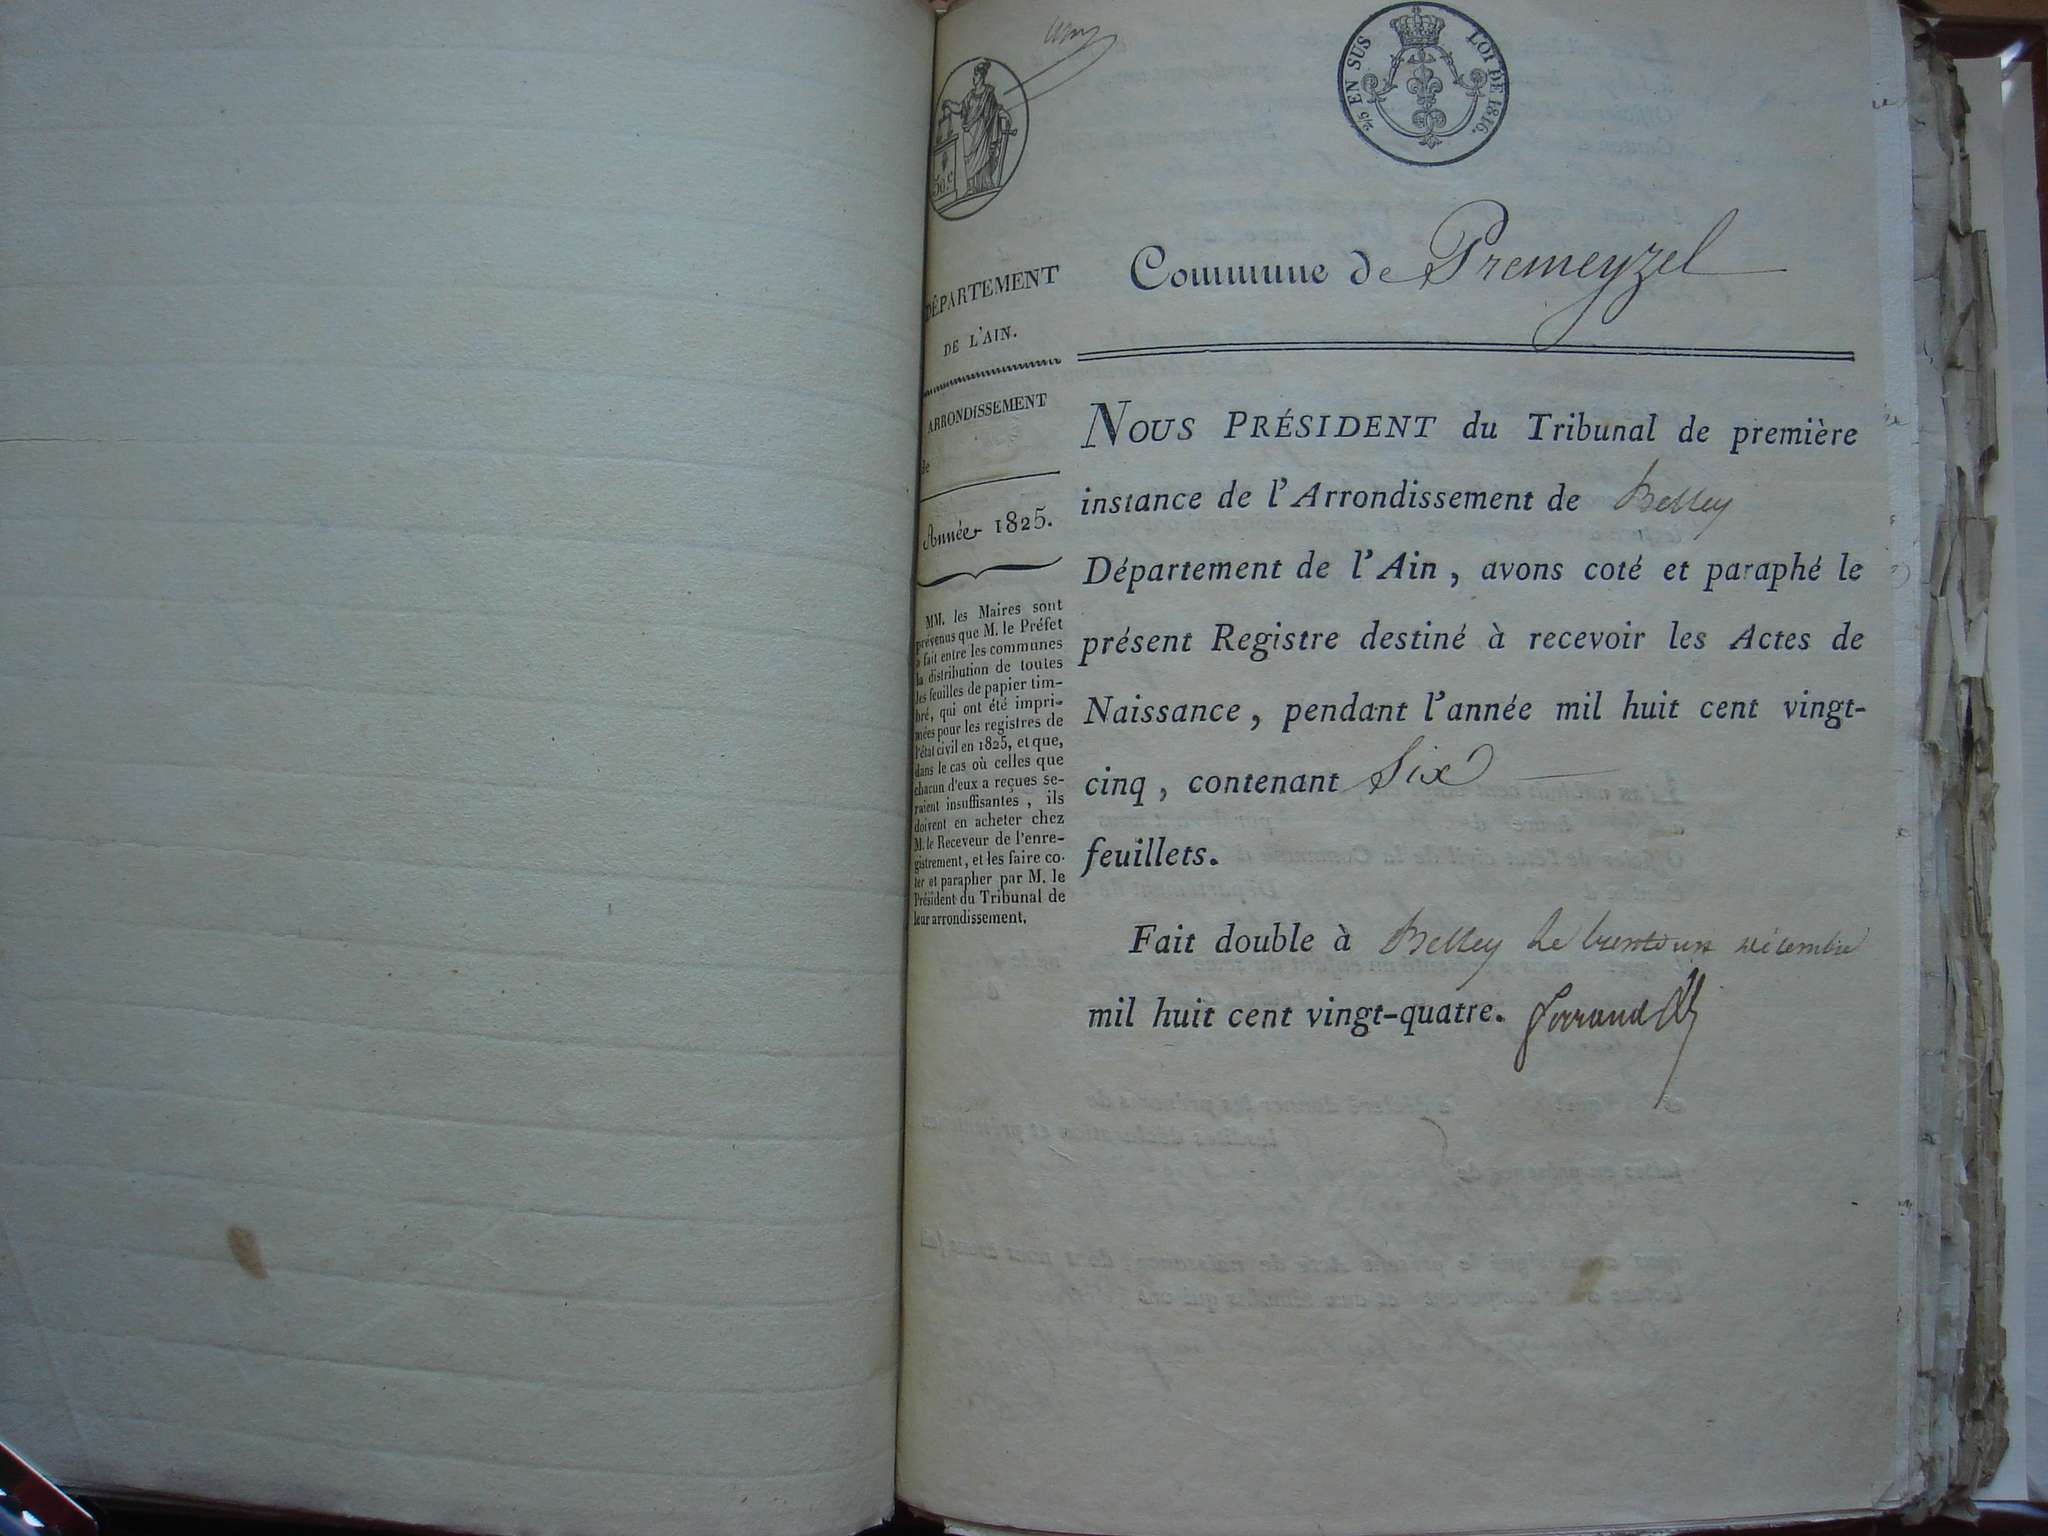 2/5 EN SUS LOI DE 1816.
50 c
DÉPARTEMENT
DE L'AIN.
ARRONDISSEMENT
de
Année 1825.
MM. les Maires sont
prévenus que M. le Préfet
a fait entre les communes
la distribution de toutes
les feuilles de papier tim-
bré, qui ont été impri-
mées pour les registres de
l'état civil en 1825, et que,
dans le cas où celles que
chacun d'eux a reçues se-
raient insuffisantes, ils
doivent en acheter chez
M. le Receveur de l'enre-
gistrement, et les faire co-
ter et parapher par M. le
Président du Tribunal de
leur arrondissement.
Commune de Premeyzel
NOUS PRÉSIDENT du Tribunal de première
instance de l'Arrondissement de Belley
Département de l'Ain, avons coté et paraphé le
présent Registre destiné à recevoir les Actes de
Naissance, pendant l'année mil huit cent vingt-
cinq, contenant Six
feuillets.
Fait double à Belley le trente un décembre
mil huit cent vingt-quatre.